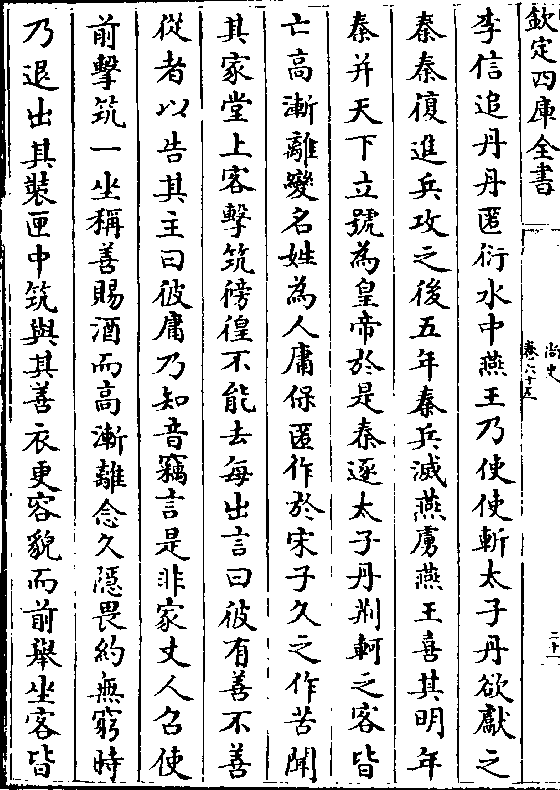 欽定四庫全書
尚史
卷六十五
二十
李信追丹丹匿衍水中燕王乃使使斬太子丹欲獻之
秦秦復進兵攻之後五年秦兵滅燕虜燕王喜其明年
秦并天下立號為皇帝於是秦逐太子丹荆軻之客皆
亡高漸離變名姓為人庸保匿作於宋子久之作苦聞
其家堂上客擊筑徬徨不能去每出言曰彼有善不善
從者以告其主曰彼庸乃知音竊言是非家丈人召使
前擊筑一坐稱善賜酒而高漸離念久隱畏約無窮時
乃退出其裝匣中筑與其善衣更容貌而前舉坐客皆